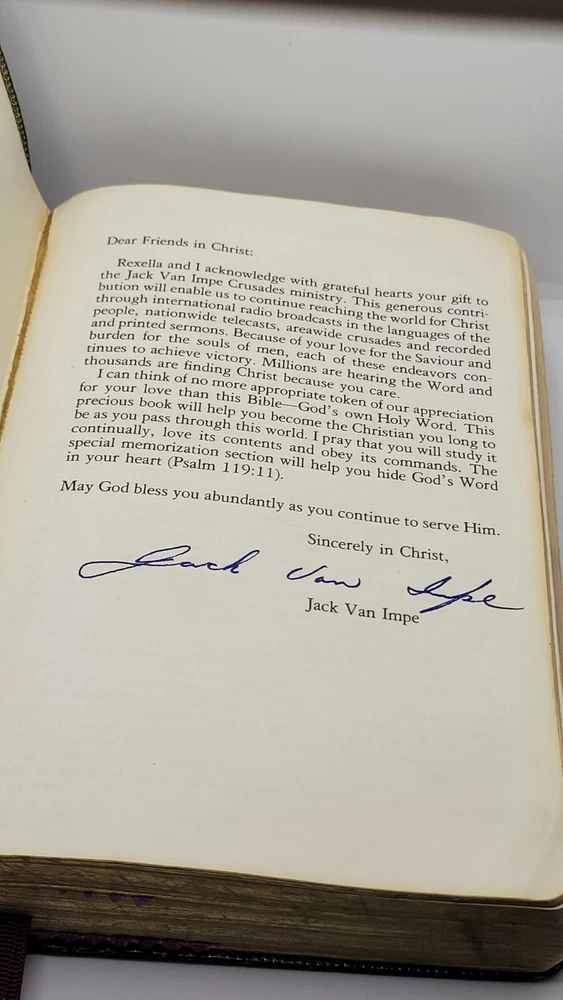 Dear Friends in Christ:
Rexella and I acknowledge with grateful hearts your gift to
the Jack Van Impe Crusades ministry. This generous contri-
bution will enable us to continue reaching the world for Christ
through international radio broadcasts in the languages of the
people, nationwide telecasts, areawide crusades and recorded
and printed sermons. Because of your love for the Saviour and
burden for the souls of men, each of these endeavors con-
tinues to achieve victory. Millions are hearing the Word and
thousands are finding Christ because you care.
I can think of no more appropriate token of our appreciation
for your love than this Bible—God's own Holy Word. This
precious book will help you become the Christian you long to
be as you pass through this world. I pray that you will study it
continually, love its contents and obey its commands. The
special memorization section will help you hide God's Word
in your heart (Psalm 119:11).
May God bless you abundantly as you continue to serve Him.
Sincerely in Christ,
Jack Van Impe
Jack Van Impe